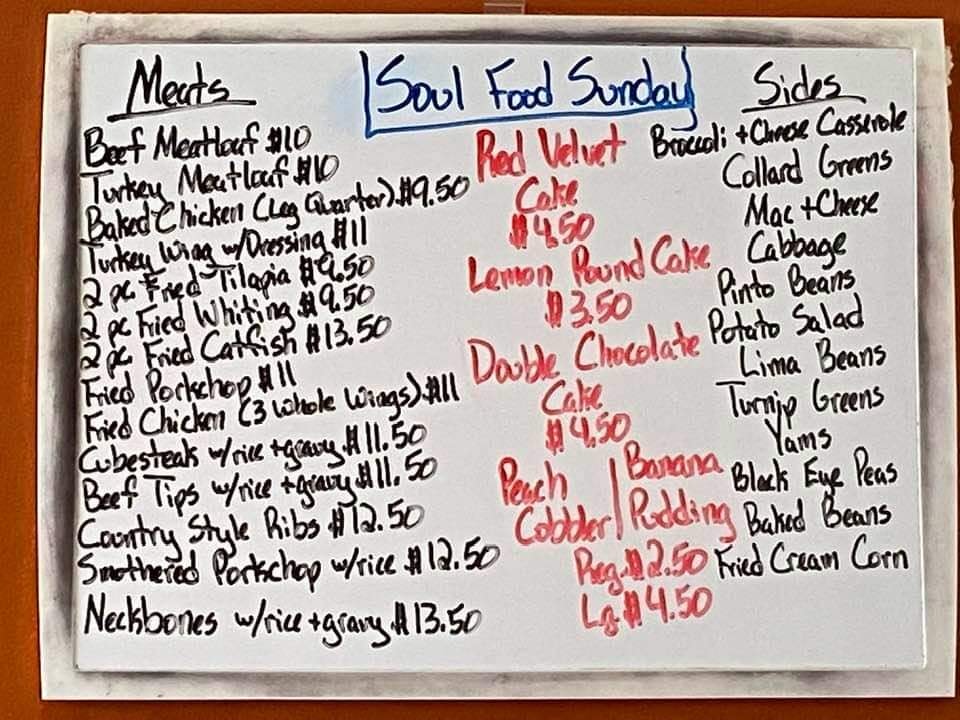 Soul Food Sunday
Meats
Beef Meatloaf $10
Turkey Meatloaf $10
Baked Chicken (Leg Quarter) $9.50
Turkey Wing w/Dressing $11
2 pc Fried Tilapia $9.50
2 pc Fried Whiting $9.50
2 pc Fried Catfish $13.50
Fried Porkchop $11
Fried Chicken (3 Whole Wings) $11
Cubesteak w/rice +gravy $11.50
Beef Tips w/rice +gravy $11.50
Country Style Ribs $12.50
Smothered Porkchop w/rice $12.50
Neckbones w/rice +gravy $13.50
Red Velvet
Cake
$4.50
Lemon Pound Cake
$3.50
Double Chocolate
Cake
$4.50
Peach | Banana
Cobbler | Pudding
Reg. $2.50
Lg. $4.50
Sides
Broccoli + Cheese Casserole
Collard Greens
Mac + Cheese
Cabbage
Pinto Beans
Potato Salad
Lima Beans
Turnip Greens
Yams
Black Eye Peas
Baked Beans
Fried Cream Corn